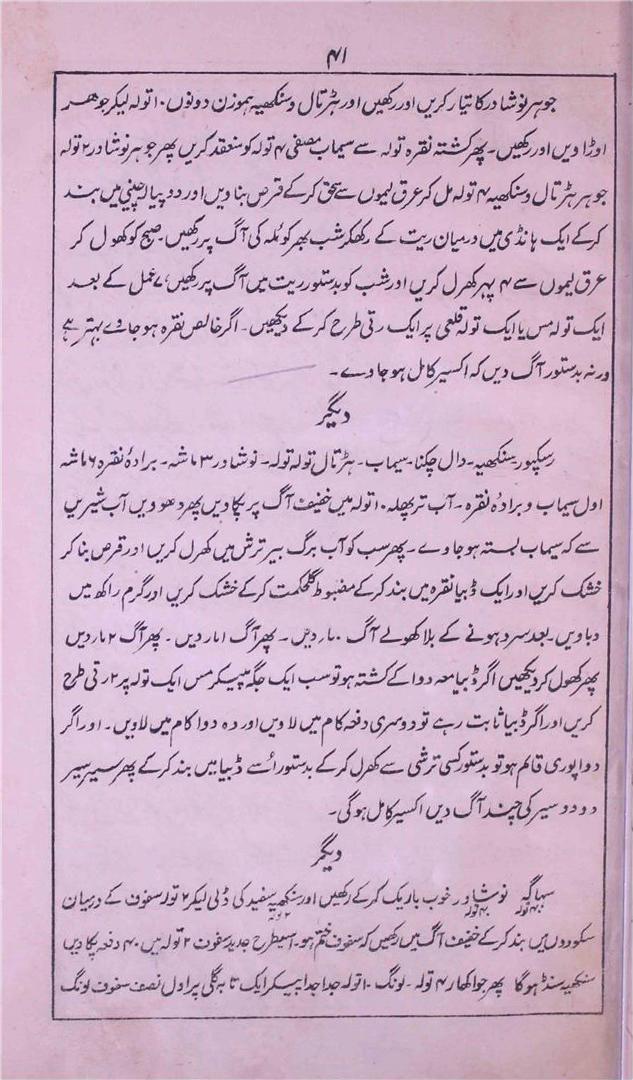 ۴۱
جوہر نوشادر کا تیار کریں اور رکھیں اور ہڑتال و سنکھیہ ہموزن دونوں ۱۰ تولہ لیکر جوہر
اوڑا دیں اور رکھیں۔ پھر کشتہ نقرہ تولہ سے سیماب مصفی ۴ تولہ کو منعقد کریں پھر جوہر نوشادر ۲ تولہ
جوہر ہڑتال و سنکھیہ ۴ تولہ مل کر عرق لیموں سے سحق کر کے قرص بنا دیں اور دو پیالہ چینی میں بند
کر کے ایک ہانڈی میں درمیان ریت کے رکھکر شب بھر کوئلہ کی آگ پر رکھیں۔ صبح کو کھول کر
عرق لیموں سے ۴ پہر کھرل کریں اور شب کو بدستور ریت میں آگ پر رکھیں، ۷ عمل کے بعد
ایک تولہ مس یا ایک تولہ قلعی پر ایک رتی طرح کر کے دیکھیں۔ اگر خالص نقرہ ہو جاوے بہتر ہے
ورنہ بدستور آگ دیں کہ اکسیر کامل ہو جاوے۔
دیگر
رسکپور سنکھیہ۔ دال چکنا۔ سیماب۔ ہڑتال تولہ تولہ۔ نوشادر ۳ ماشہ۔ برادۂ نقرہ ۶ ماشہ
اول سیماب و برادۂ نقرہ۔ آب ترپھلہ ۱۰ تولہ میں خفیف آگ پر پکا دیں پھر دھوویں آب شیریں
سے کہ سیماب بستہ ہو جاوے۔ پھر سب کو آب برگ بیر ترش میں کھرل کریں اور قرص بنا کر
خشک کریں اور ایک ڈبیا نقرہ میں بند کر کے مضبوط گلحکمت کر کے خشک کریں اور گرم راکھ میں
دباویں۔ بعد سرد ہونے کے بلا کھولے آگ ۱۰ مار دیں۔ پھر آگ ۱ مار دیں۔ پھر آگ ۲ مار دیں
پھر کھول کر دیکھیں اگر ڈبیا معہ دوا کے کشتہ ہو تو سب ایک جگہ پیسکر مس ایک تولہ پر ۲ رتی طرح
کریں اور اگر ڈبیا ثابت رہے تو دوسری دفعہ کام میں لاویں اور وہ دوا کام میں لاویں۔ اور اگر
دوا پوری قائم ہو تو بدستور کسی ترشی سے کھرل کر کے بدستور اُسے ڈبیا میں بند کر کے پھر سیر سیر
دو دو سیر کی چند آگ دیں اکسیر کامل ہو گی۔
دیگر
سہاگہ نوشادر خوب باریک کر کے رکھیں اور سنکھیہ سفید کی ڈلی لیکر ۲ تولہ سفوف کے درمیان
۴۰ تولہ ۴۰ تولہ ۲ تولہ
سکوروں میں بند کر کے خفیف آگ میں رکھیں کہ سفوف ختم ہو۔ اسیطرح جدید سفوف ۲ تولہ میں ۴۰ دفعہ پکا دیں
سنکھیہ سنڈ ہو گا پھر جواکھار ۴ تولہ۔ لونگ ۱۰ تولہ جدا جدا پیسکر ایک تابہ گلی پر اول نصف سفوف لونگ